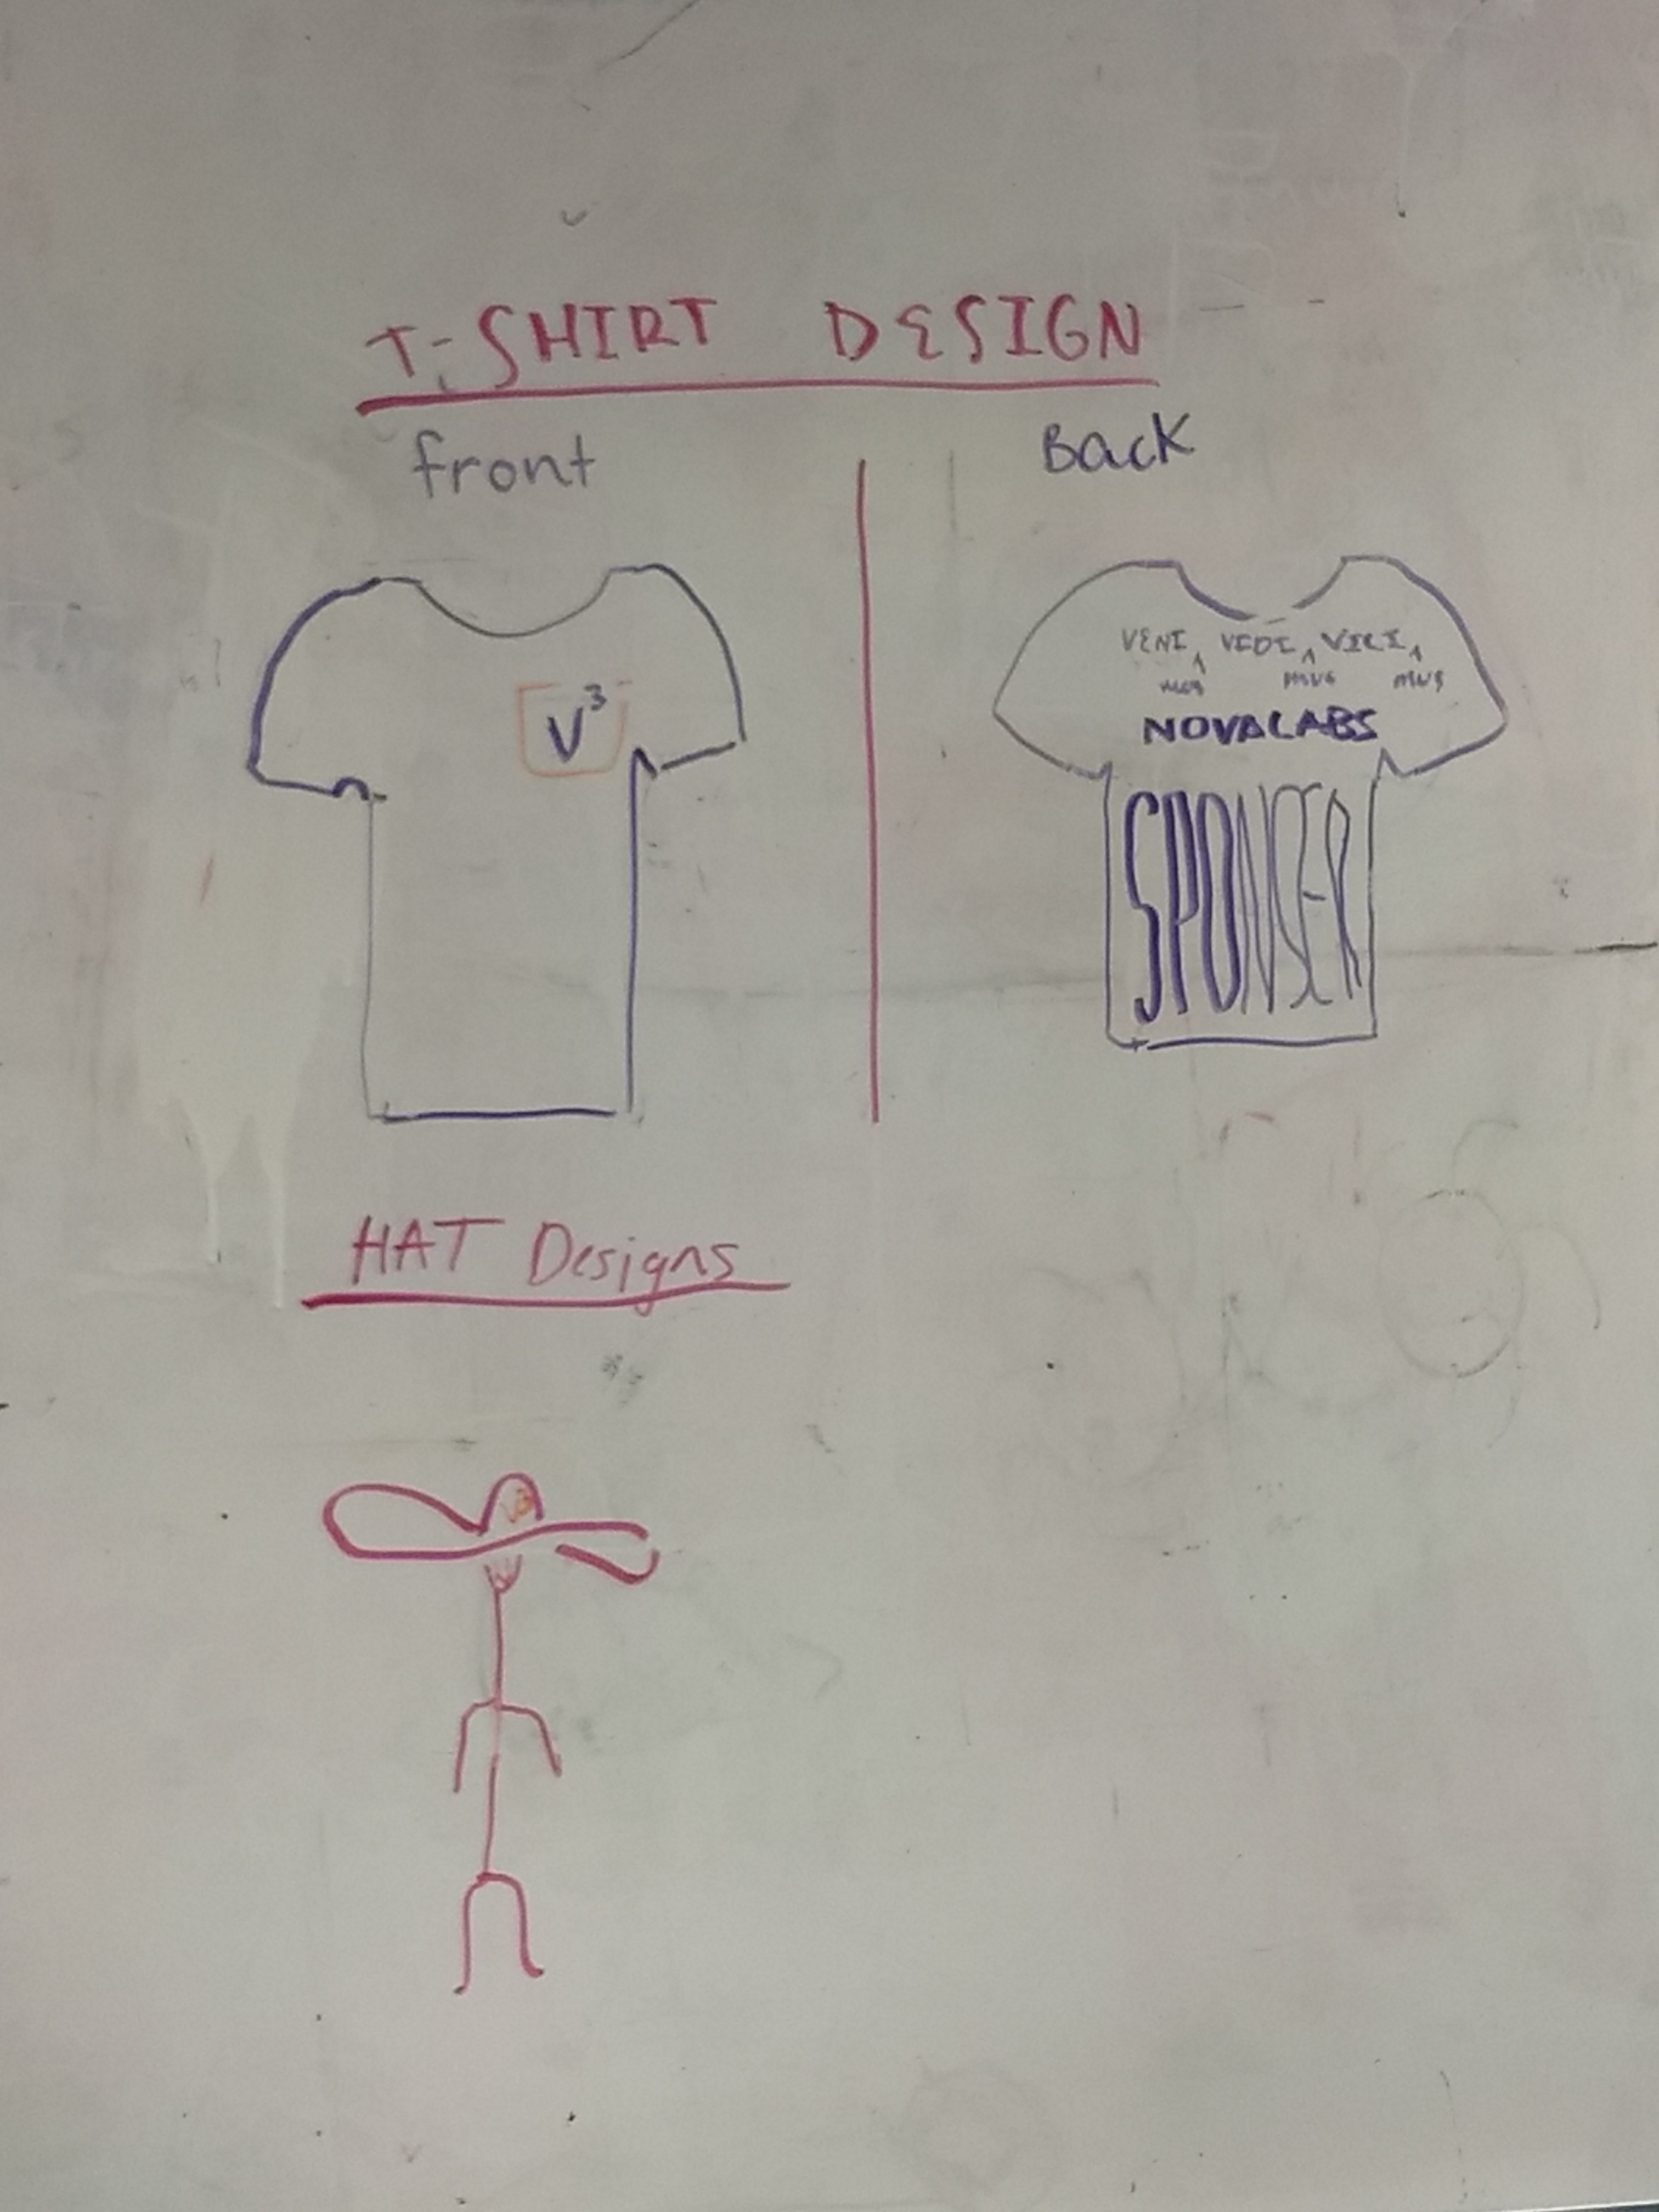 T-SHIRT DESIGN
front
Back
V³
VENI, VEDI, VICI,
mus mus mus
NOVALABS
SPONSER
HAT Designs
V³